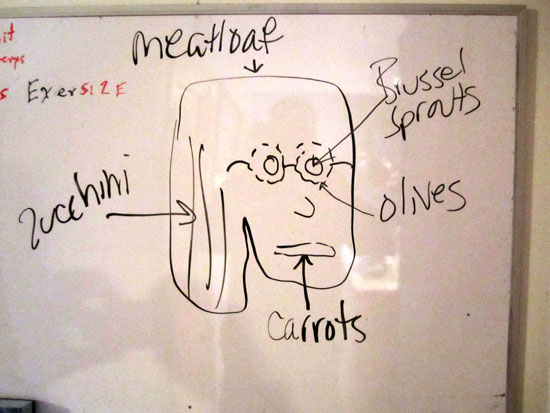 Meatloaf
it
s ExerSIZE
Brussel
sprouts
zucchini
olives
carrots